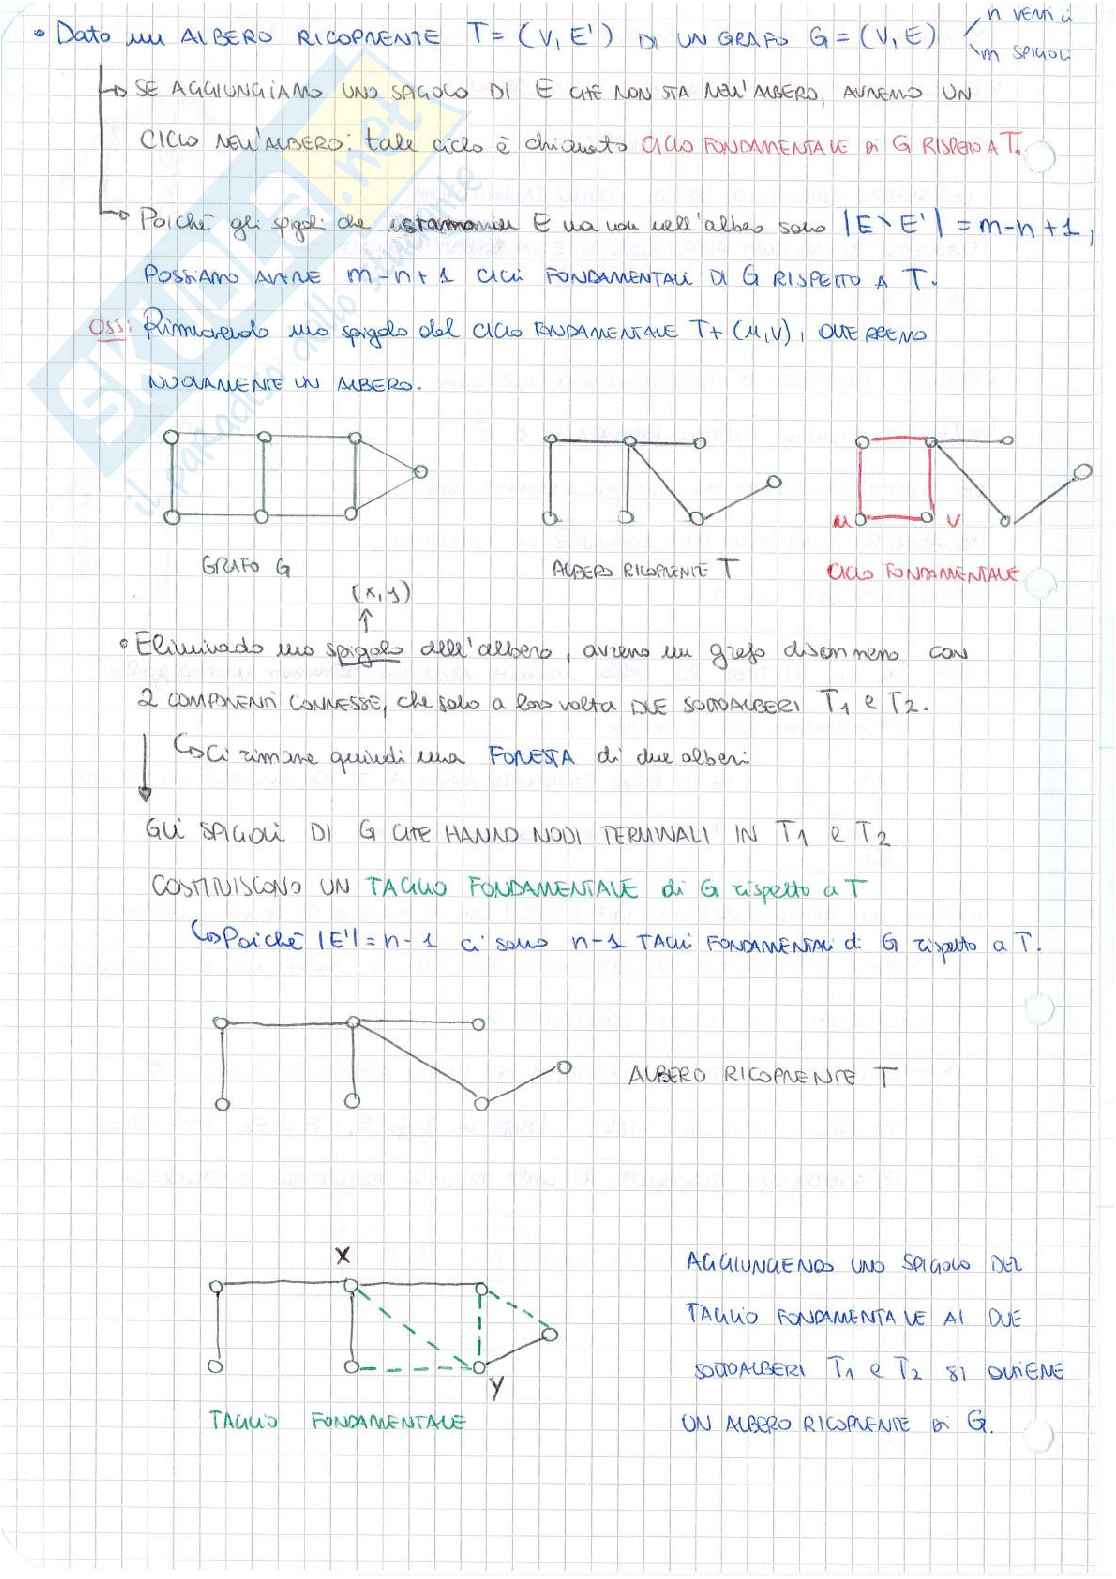 • Dato un ALBERO RICOPRENTE T = (V, E') DI UN GRAFO G = (V, E)
n vertici
m SPIGOLI
↳ SE AGGIUNGIAMO UNO SPIGOLO DI E CHE NON STA NELL'ALBERO, AVREMO UN
CICLO NELL'ALBERO: tale ciclo è chiamato CICLO FONDAMENTALE DI G RISPETTO A T.
↳ Poiché gli spigoli che E ma non nell'albero sono |E \ E'| = m-n+1,
POSSIAMO AVERE m-n+1 CICLI FONDAMENTALI DI G RISPETTO A T.
OSS: Rimuovendo uno spigolo del CICLO FONDAMENTALE T+ (u,v), OTTERREMO
NUOVAMENTE UN ALBERO.
u v
GRAFO G ALBERO RICOPRENTE T CICLO FONDAMENTALE
(x, y)
↑
• Eliminando uno spigolo dell'albero, avremo un grafo disconnesso con
2 COMPONENTI CONNESSE, che sono a loro volta DUE SOTTOALBERI T1 e T2.
↳ Ci rimane quindi una FORESTA di due alberi
GLI SPIGOLI DI G CHE HANNO NODI TERMINALI IN T1 e T2
COSTITUISCONO UN TAGLIO FONDAMENTALE di G rispetto a T
↳ Poiché |E'| = n-1 ci sono n-1 TAGLI FONDAMENTALI di G rispetto a T.
ALBERO RICOPRENTE T
X
Y
TAGLIO FONDAMENTALE
AGGIUNGENDO UNO SPIGOLO DEL
TAGLIO FONDAMENTALE AI DUE
SOTTOALBERI T1 e T2 SI OTTIENE
UN ALBERO RICOPRENTE DI G.
SKUOLA.net
il paradiso dello studente